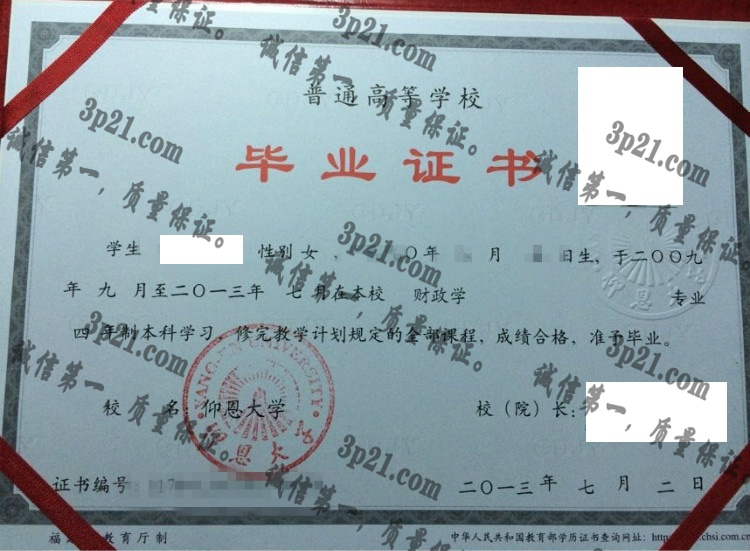 普通高等学校
毕业证书
学生 性别 女 , 〇年 月 日生,于二〇〇九
年 九 月至二〇一三年 七 月在本校 财政学 专业
四 年制本科学习,修完教学计划规定的全部课程,成绩合格,准予毕业。
YANG-EN UNIVERSITY
仰恩大学
校 名:仰恩大学 校(院)长:
证书编号: 17
二〇一三 年 七 月 二 日
教育厅制 中华人民共和国教育部学历证书查询网址:
3p21.com
诚信第一,质量保证。
3p21.com
诚信第一,质量保证。
3p21.com
诚信第一,质量保证。
3p21.com
诚信第一,质量保证。
3p21.com
诚信第一,质量保证。
3p21.com
诚信第一,质量保证。
3p21.com
诚信第一,质量保证。
3p21.com
诚信第一,质量保证。